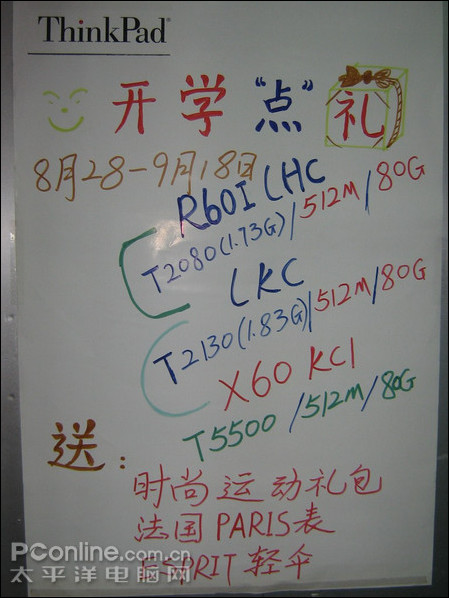 ThinkPad®
开学"点"礼
8月28-9月18日
R60I LHC
T2080(1.73G)/512M/80G
LKC
T2130(1.83G)/512M/80G
X60 KCI
T5500 /512M/80G
送:
时尚运动礼包
法国PARIS表
ESPRIT轻伞
PConline.com.cn
太平洋电脑网